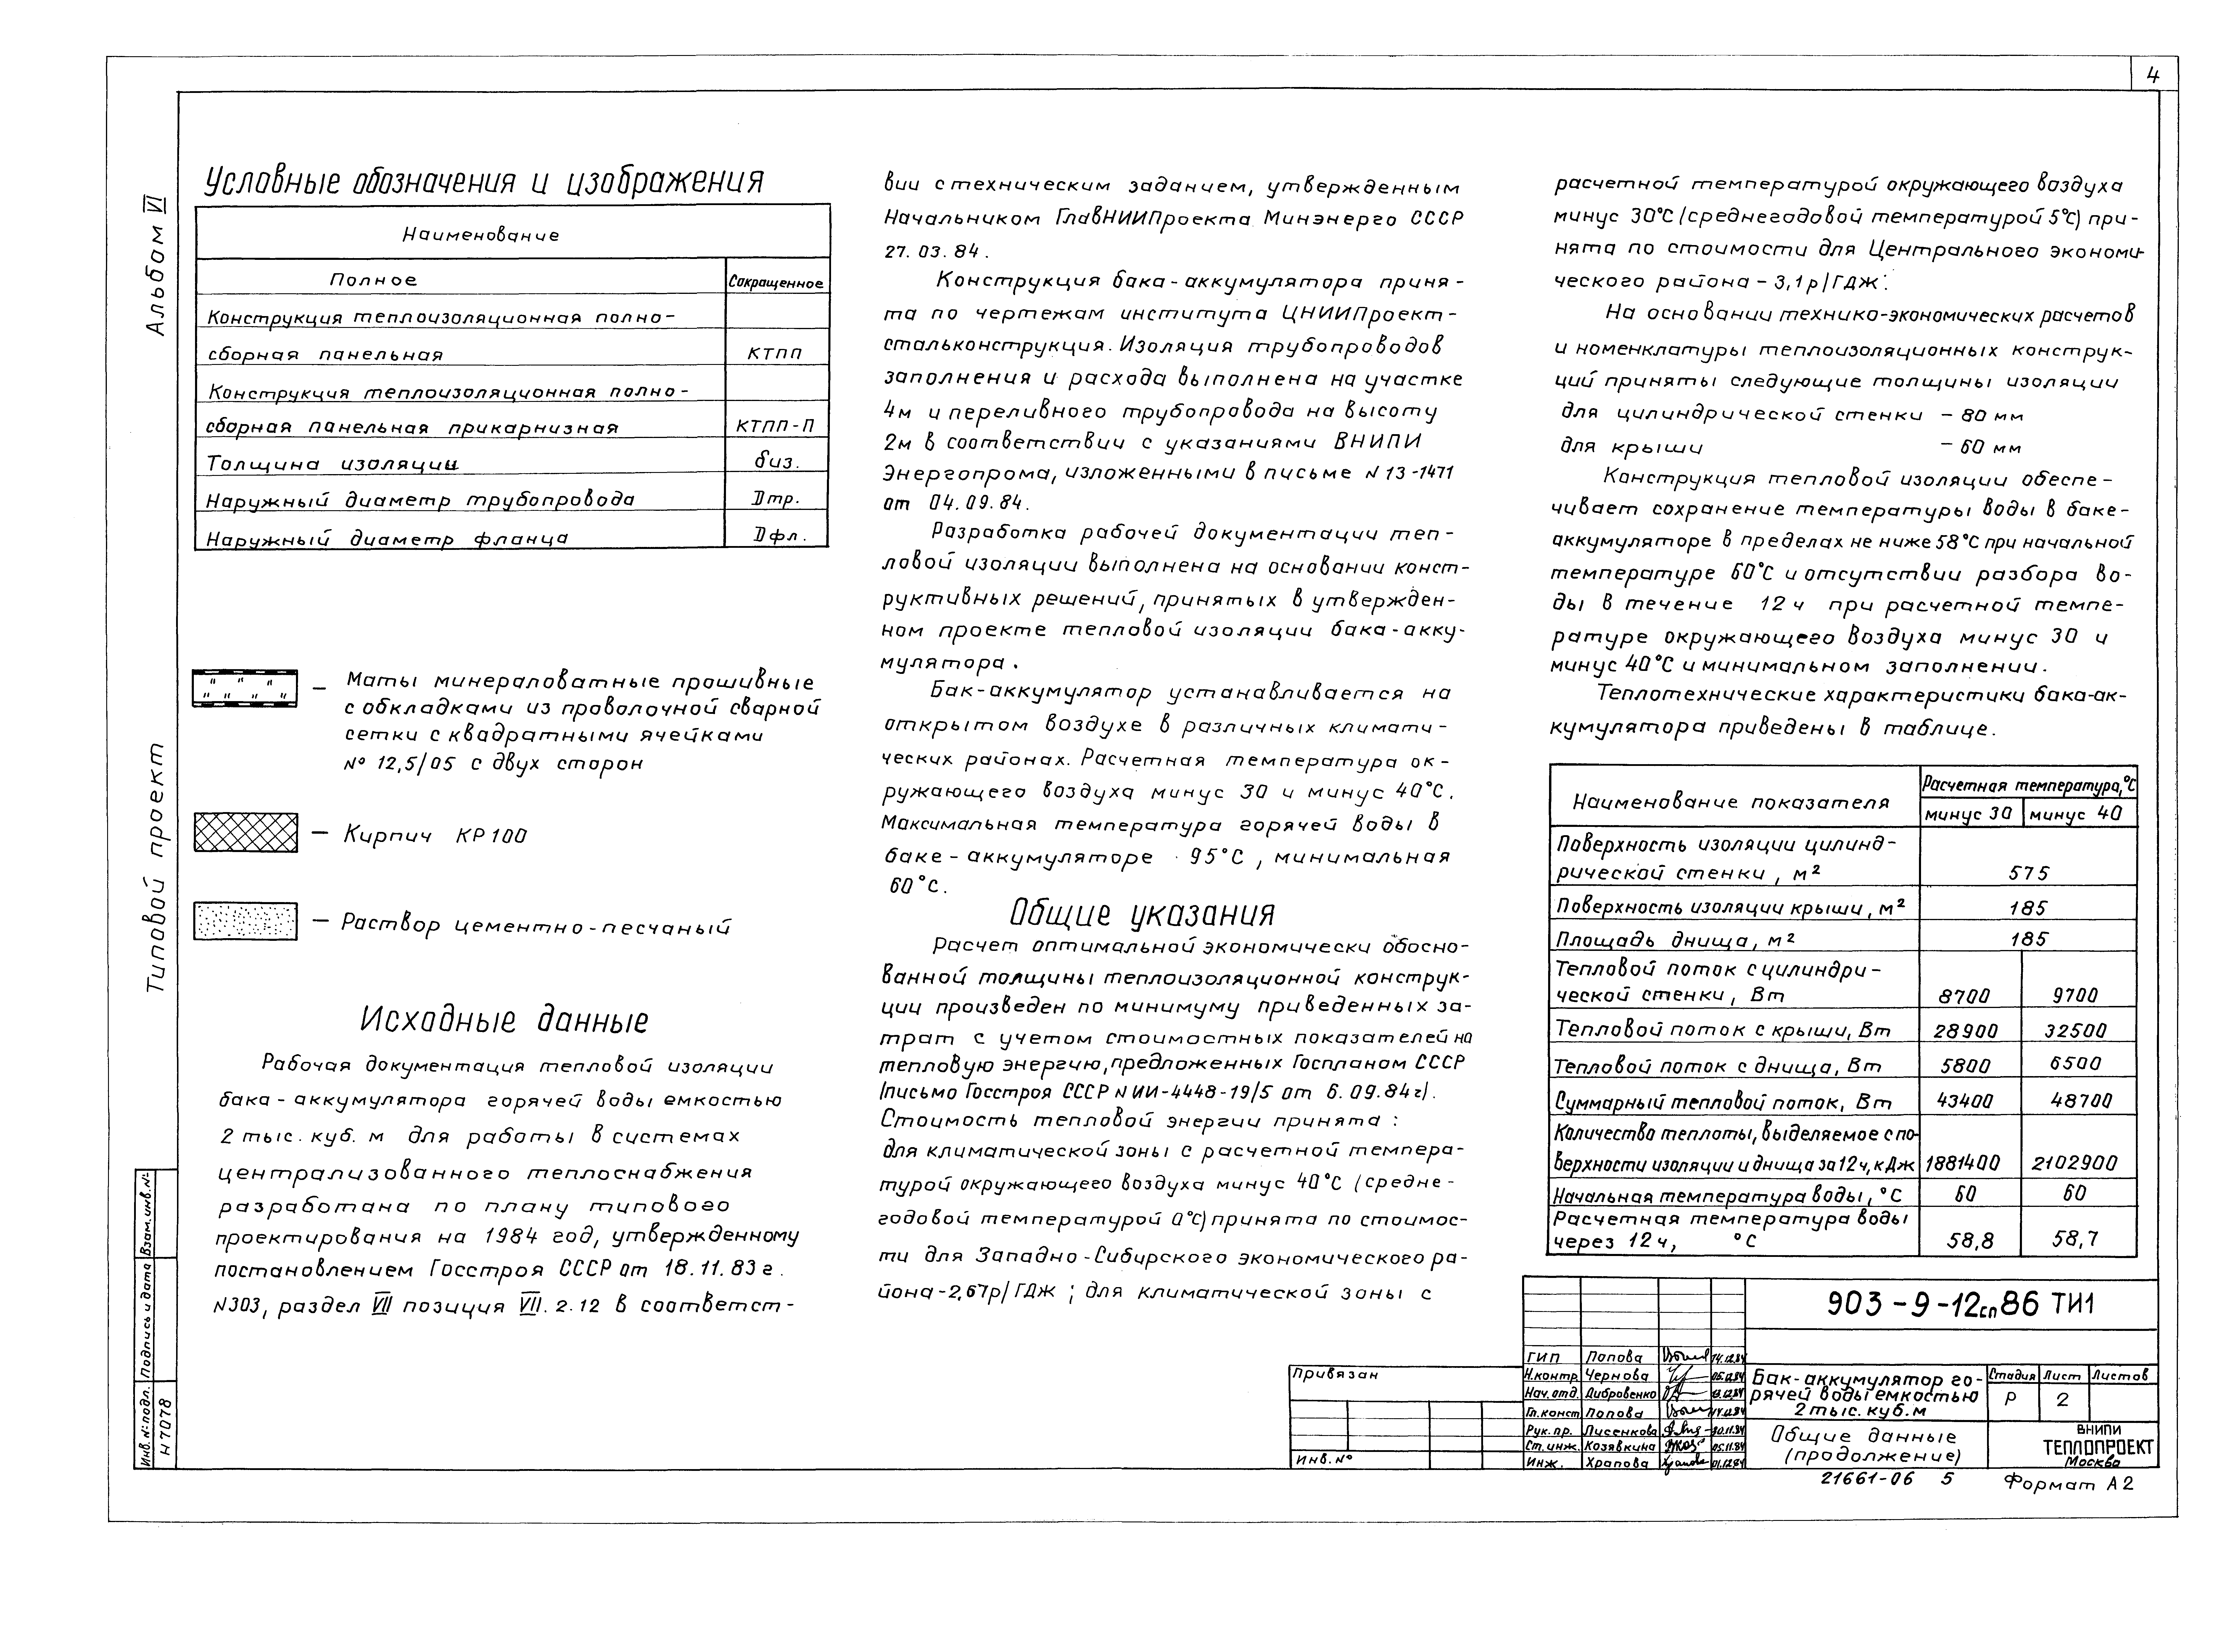 4
Альбом VI
Типовой проект
Условные обозначения и изображения
Наименование
Полное Сокращенное
Конструкция теплоизоляционная полно-
сборная панельная КТПП
Конструкция теплоизоляционная полно-
сборная панельная прикарнизная КТПП-П
Толщина изоляции δиз.
Наружный диаметр трубопровода Dтр.
Наружный диаметр фланца Dфл.
— Маты минераловатные прошивные
с обкладками из проволочной сварной
сетки с квадратными ячейками
№ 12,5/05 с двух сторон
— Кирпич КР100
— Раствор цементно-песчаный
Исходные данные
Рабочая документация тепловой изоляции
бака-аккумулятора горячей воды емкостью
2 тыс. куб. м для работы в системах
централизованного теплоснабжения
разработана по плану типового
проектирования на 1984 год, утвержденному
постановлением Госстроя СССР от 18.11.83г.
N303, раздел VII позиция VII. 2.12 в соответст-
вии с техническим заданием, утвержденным
Начальником ГлавНИИПроекта Минэнерго СССР
27.03.84.
Конструкция бака-аккумулятора приня-
та по чертежам института ЦНИИПроект-
стальконструкция. Изоляция трубопроводов
заполнения и расхода выполнена на участке
4м и переливного трубопровода на высоту
2м в соответствии с указаниями ВНИПИ
Энергопрома, изложенными в письме N 13-1471
от 04.09.84.
Разработка рабочей документации теп-
ловой изоляции выполнена на основании конст-
руктивных решений, принятых в утвержден-
ном проекте тепловой изоляции бака-акку-
мулятора.
Бак-аккумулятор устанавливается на
открытом воздухе в различных климати-
ческих районах. Расчетная температура ок-
ружающего воздуха минус 30 и минус 40°С.
Максимальная температура горячей воды в
баке-аккумуляторе 95°С, минимальная
60°С.
Общие указания
Расчет оптимальной экономически обосно-
ванной толщины теплоизоляционной конструк-
ции произведен по минимуму приведенных за-
трат с учетом стоимостных показателей на
тепловую энергию, предложенных Госпланом СССР
(письмо Госстроя СССР N ИИ-4448-19/5 от 6.09.84г).
Стоимость тепловой энергии принята :
для климатической зоны с расчетной темпера-
турой окружающего воздуха минус 40°С (средне-
годовой температурой 0°С) принята по стоимос-
ти для Западно-Сибирского экономического ра-
йона-2,67р/ГДЖ ; для климатической зоны с
расчетной температурой окружающего воздуха
минус 30°С (среднегодовой температурой 5°С) при-
нята по стоимости для Центрального экономи-
ческого района - 3,1р/ГДЖ.
На основании технико-экономических расчетов
и номенклатуры теплоизоляционных конструк-
ций приняты следующие толщины изоляции
для цилиндрической стенки - 80 мм
для крыши - 60 мм
Конструкция тепловой изоляции обеспе-
чивает сохранение температуры воды в баке-
аккумуляторе в пределах не ниже 58°С при начальной
температуре 60°С и отсутствии разбора во-
ды в течение 12ч при расчетной темпе-
ратуре окружающего воздуха минус 30 и
минус 40°С и минимальном заполнении.
Теплотехнические характеристики бака-ак-
кумулятора приведены в таблице.
Наименование показателя Расчетная температура, °С
минус 30 минус 40
Поверхность изоляции цилинд-
рической стенки, м² 575
Поверхность изоляции крыши, м² 185
Площадь днища, м² 185
Тепловой поток с цилиндри-
ческой стенки, Вт 8700 9700
Тепловой поток с крыши, Вт 28900 32500
Тепловой поток с днища, Вт 5800 6500
Суммарный тепловой поток, Вт 43400 48700
Количество теплоты, выделяемое с по-
верхности изоляции и днища за 12ч, кДж 1881400 2102900
Начальная температура воды, °С 60 60
Расчетная температура воды
через 12ч, °С 58,8 58,7
903-9-12сп86 ТИ1
ГИП Попова 14.12.84
Н.контр. Чернова 05.12.84
Нач.отд. Дибровенко
Гл.конст Попова
Рук.пр. Лисенкова 30.11.84
Ст.инж. Козявкина 05.11.84
Инж. Храпова 01.12.84
Бак-аккумулятор го-
рячей воды емкостью
2тыс. куб. м
Стадия Лист Листов
Р 2
Общие данные
(продолжение)
ВНИПИ
ТЕПЛОПРОЕКТ
Москва
Привязан
Инв. №
21661-06 5
Формат А2
Инв.№подл. Подпись и дата Взам.инв.№
Н7078